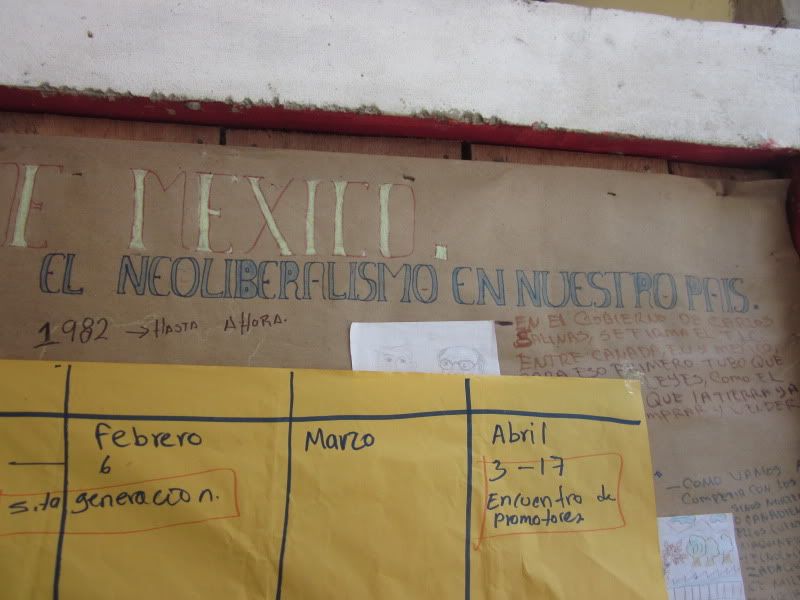 E MEXICO.
EL NEOLIBERALISMO EN NUESTRO PAIS.
1982 → HASTA AHORA.
EN EL GOBIERNO DE CARLOS
SALINAS, SE FIRMA EL
ENTRE CANADA, EU Y MEXICO,
PARA ESO PRIMERO TUBO QUE
LEYES, COMO EL
QUE LA TIERRA YA
MPRAR Y VENDER
Febrero
6
s.to generacion.
Marzo
Abril
3-17
Encuentro de
promotores
- COMO VAMOS A
COMPETIR CON LOS